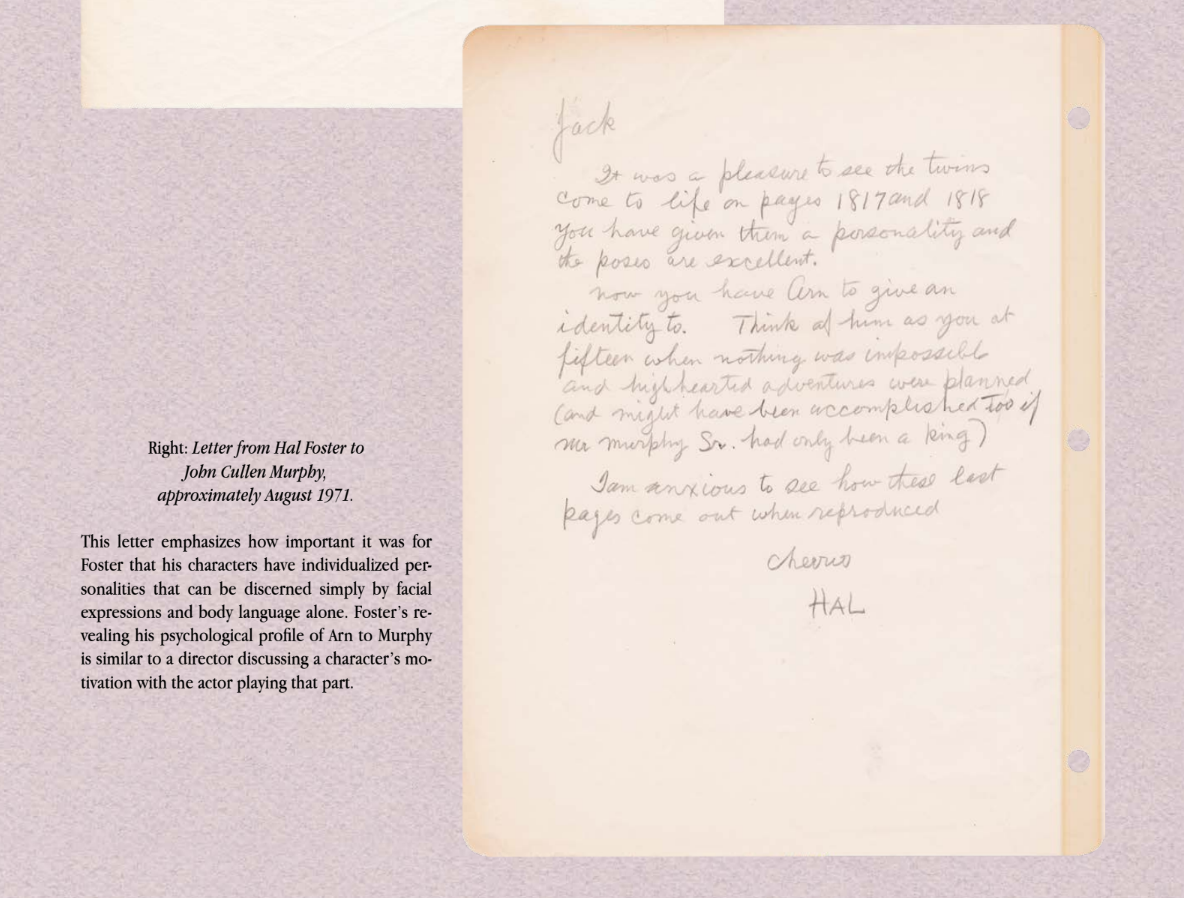 Right: Letter from Hal Foster to
John Cullen Murphy,
approximately August 1971.
This letter emphasizes how important it was for
Foster that his characters have individualized per-
sonalities that can be discerned simply by facial
expressions and body language alone. Foster's re-
vealing his psychological profile of Arn to Murphy
is similar to a director discussing a character's mo-
tivation with the actor playing that part.
Jack
It was a pleasure to see the twins
come to life on pages 1817 and 1818
You have given them a personality and
the poses are excellent.
Now you have Arn to give an
identity to. Think of him as you at
fifteen when nothing was impossible
and highhearted adventures were planned
(and might have been accomplished too if
Mr Murphy Sr. had only been a king)
I am anxious to see how these last
pages come out when reproduced
Cheerio
HAL